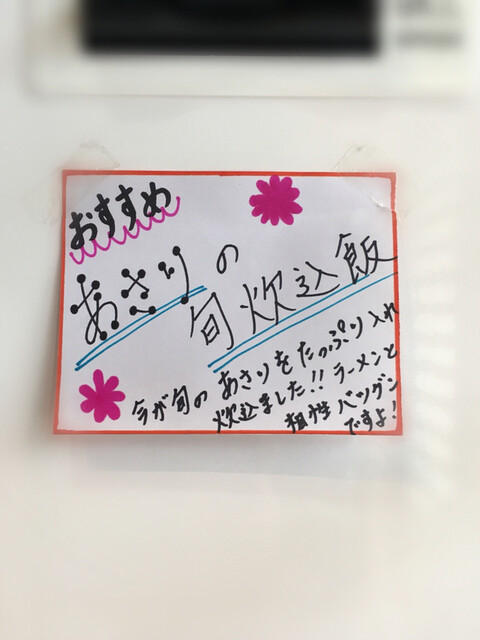 おすすめ
あさりの
旬炊込飯
今が旬のあさりをたっぷり入れ
炊込ました!!ラーメンと
相性バツグン
ですよ!